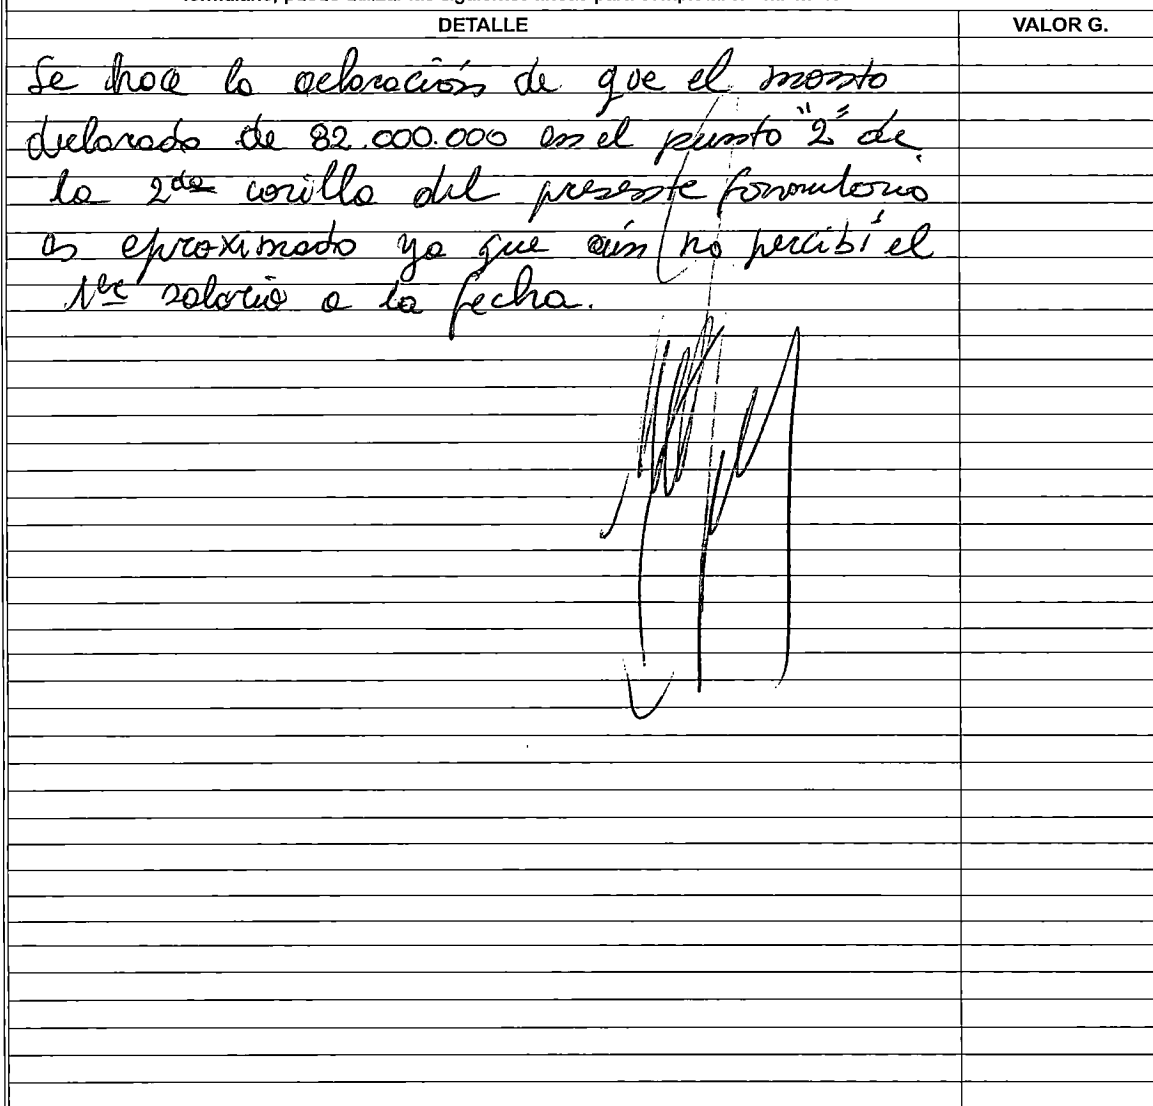 DETALLE VALOR G.
Se hace la aclaración de que el monto
declarado de 82.000.000 en el punto "2" de
la 2da carilla del presente formulario
es aproximado ya que aún no percibí el
1er salario a la fecha.